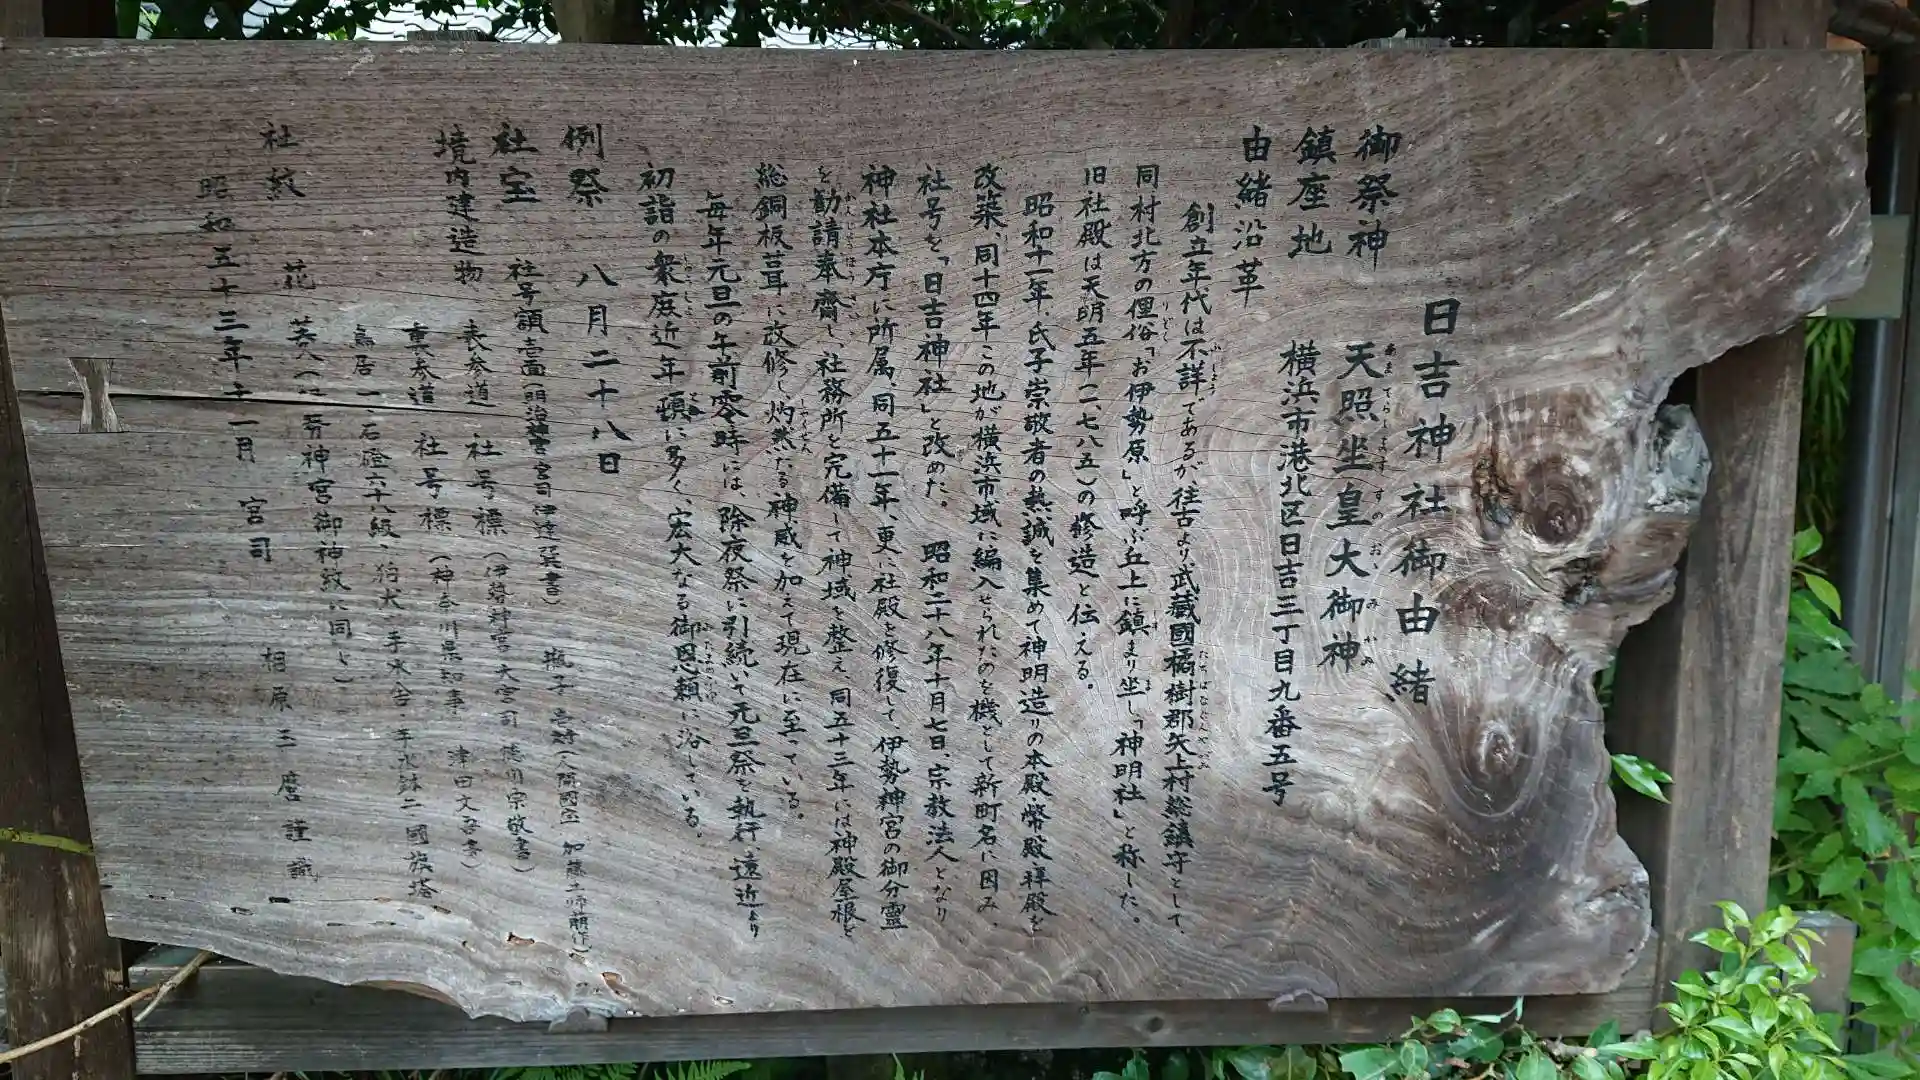 日吉神社御由緒
御祭神　天照坐皇大御神
鎮座地　横浜市港北区日吉三丁目九番五号
由緒沿革
創立年代は不詳であるが、往古より武蔵國橘樹郡矢上村総鎮守として、
同村北方の俚俗「お伊勢原」と呼ぶ丘上に鎮まり坐し「神明社」と称した。
旧社殿は天明五年(一、七八五)の修造と伝える。
昭和十一年、氏子崇敬者の熱誠を集めて神明造りの本殿・幣殿・拝殿を
改築、同十四年この地が横浜市域に編入せられたのを機として新町名に因み、
社号を「日吉神社」と改めた。　昭和二十八年十月七日、宗教法人となり
神社本庁に所属、同五十一年、更に社殿を修復して伊勢神宮の御分霊
を勧請奉齋し、社務所を完備して神域を整え、同五十三年には神殿屋根を
総銅板葺に改修し灼然たる神威を加えて現在に至っている。
毎年元旦の午前零時には、除夜祭に引続いて元旦祭を執行、遠近より
初詣の衆庶近年頓に多く、宏大なる御恩頼に浴している。
例祭　八月二十八日
社宝　社号額壱面(明治神宮宮司伊達巽書)　瓶子壱対(人間國宝　加藤土師萠作)
境内建造物　表参道　社号標(伊勢神宮大宮司　徳川宗敬書)
裏参道　社号標(神奈川県知事　津田文吾書)
鳥居一・石磴六十八級・狛犬・手水舎・手水鉢二　國旗塔
社紋　花菱(伊勢神宮御神紋に同じ)
昭和五十三年十一月　宮司　相原三麿謹識